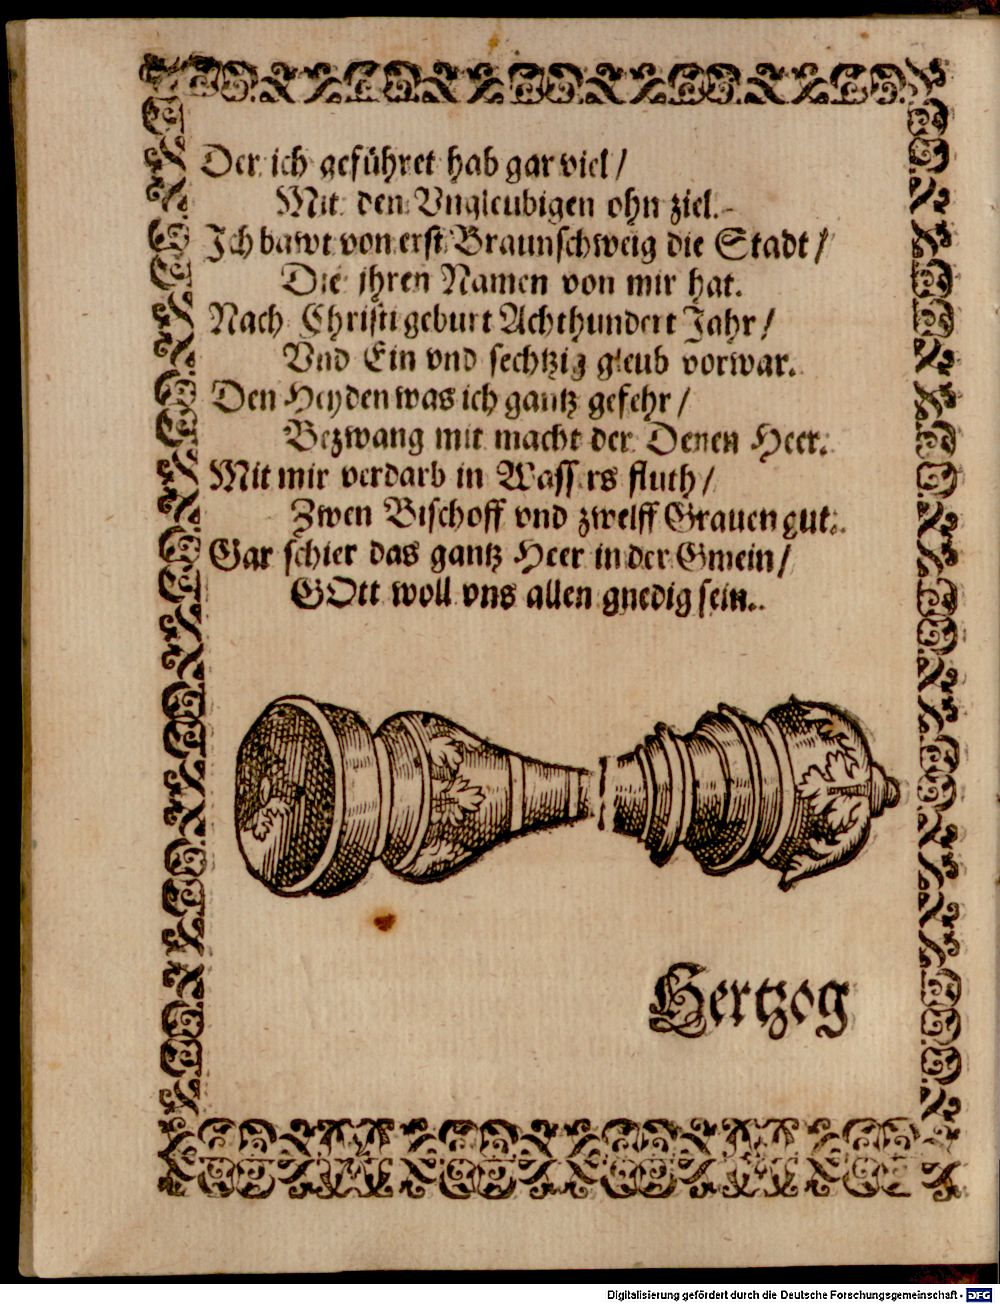 Der ich geführet hab gar viel /
Mit den Vngleubigen ohn ziel.
Ich bawt von erst Braunschweig die Stadt /
Die jhren Namen von mir hat.
Nach Christi geburt Achthundert Jahr /
Vnd Ein vnd sechtzig gleub vorwar.
Den Heyden was ich gantz gefehr /
Bezwang mit macht der Denen Heer.
Mit mir verdarb in Wassers fluth /
Zwen Bischoff vnd zwelff Grauen gut.
Gar schier das gantz Heer in der Gmein /
GOtt woll vns allen gnedig sein.
Hertzog
Digitalisierung gefördert durch die Deutsche Forschungsgemeinschaft - DFG